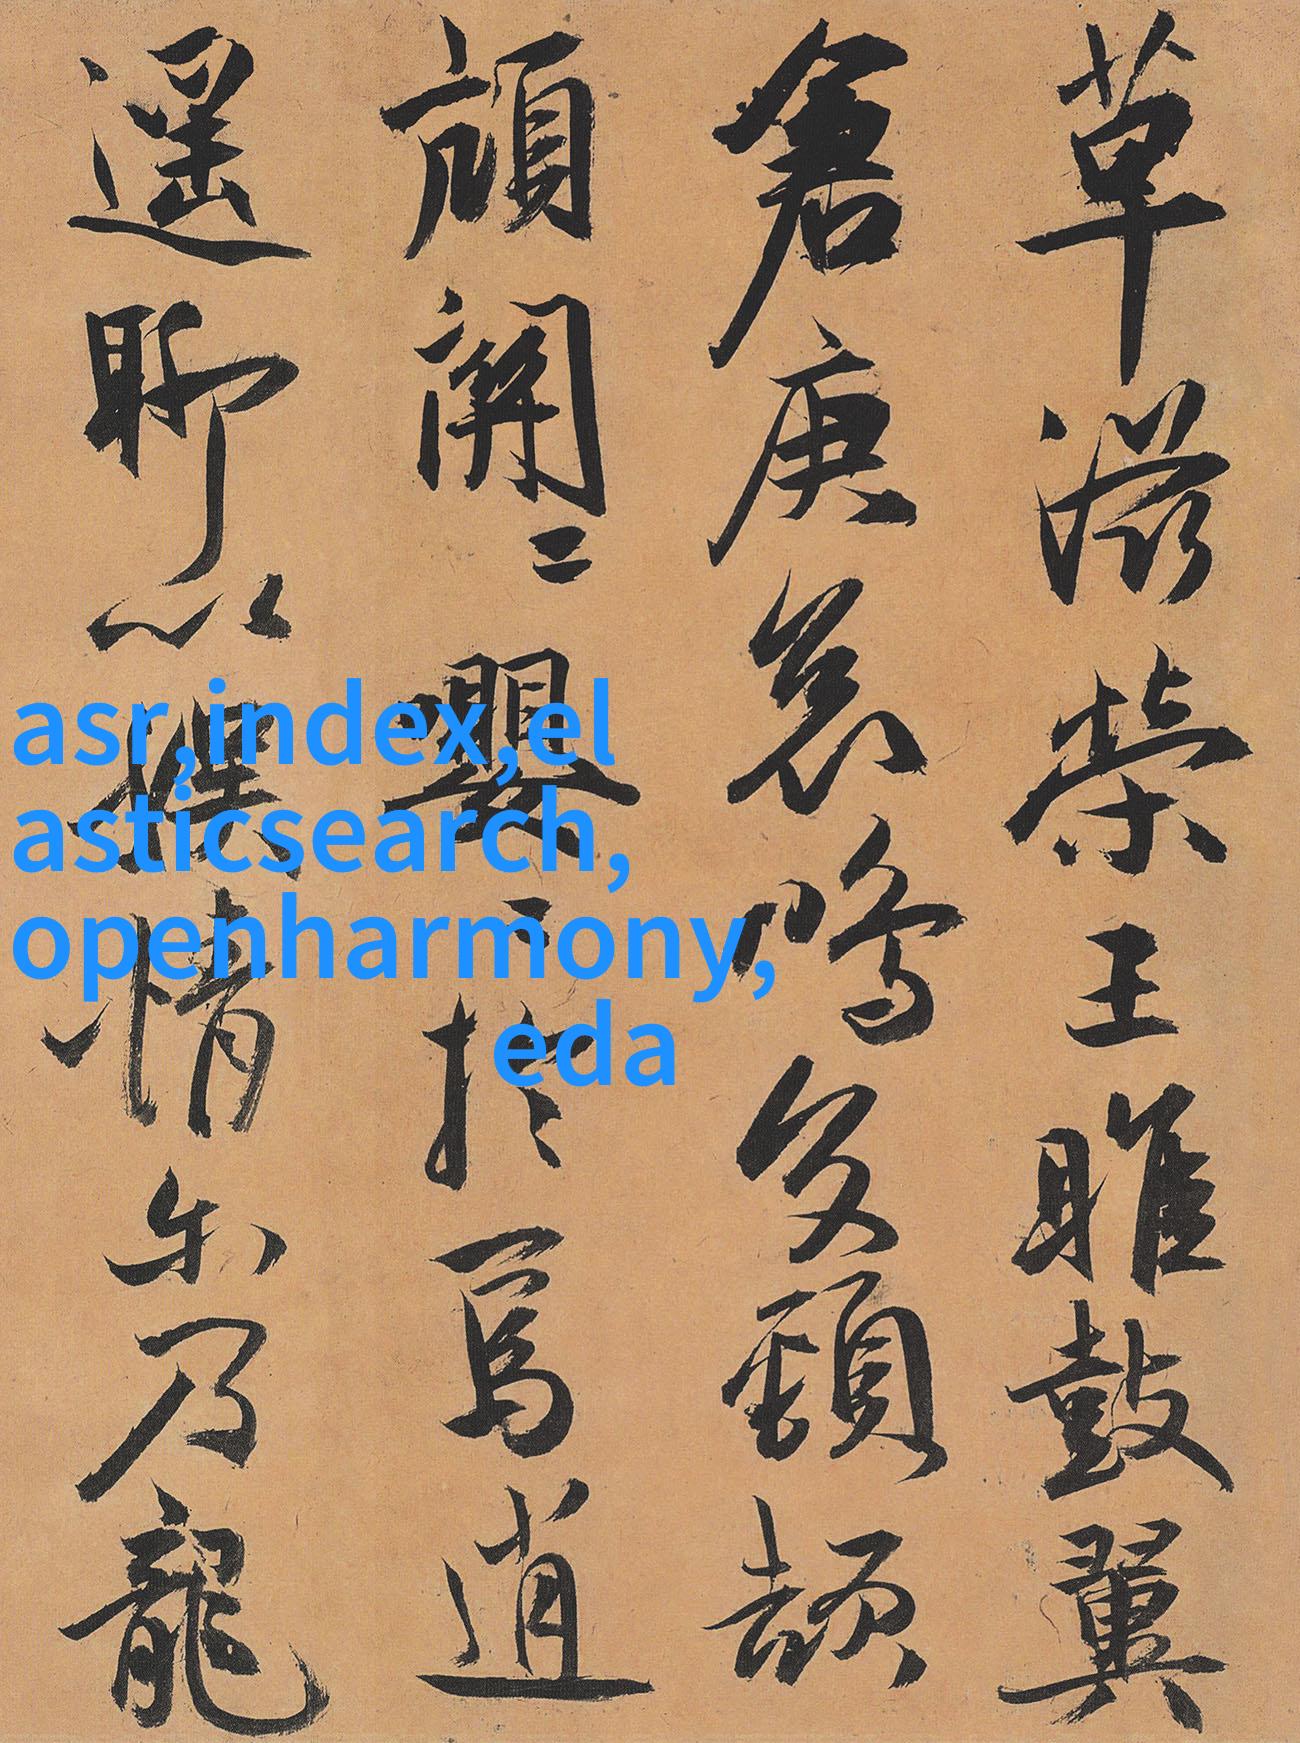 草滋榮王雎鼓翼
倉庚哀鳴交頸頡
頏關二嚶二於焉逍
遥聊以娛情尓乃龍
asr,index,el
asticsearch,
openharmony,
eda